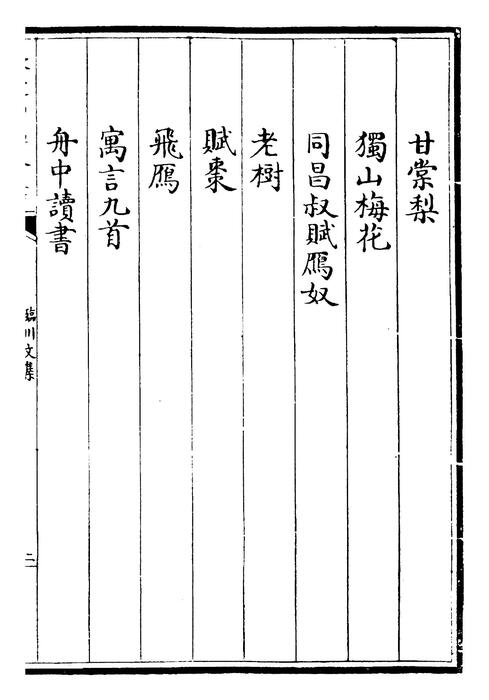 甘棠梨
獨山梅花
同昌叔賦鴈奴
老樹
賦棗
飛鴈
寓言九首
舟中讀書
臨川文集
二